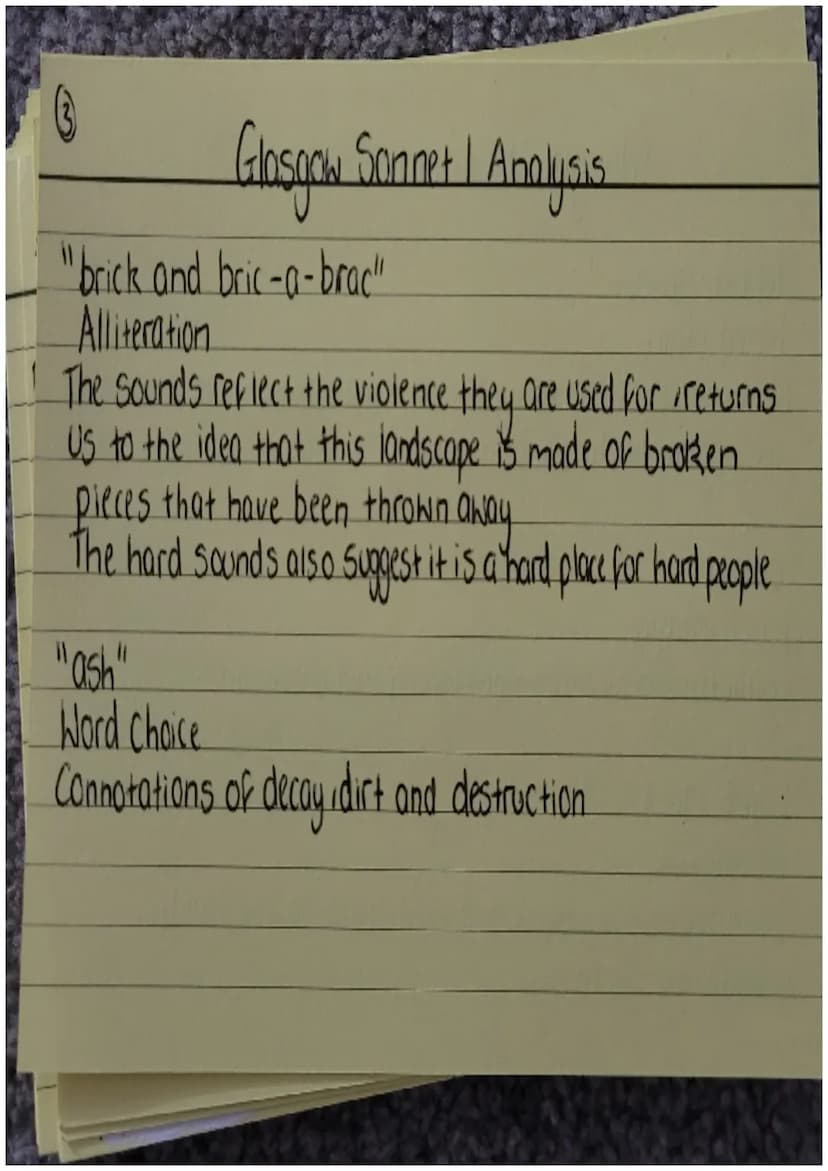 3
Glasgow Sonnet 1 Analysis
"brick and bric-a-brac"
Alliteration
The sounds reflect the violence they are used for, returns
us to the idea that this landscape is made of broken
pieces that have been thrown away
The hard sounds also suggest it is a hard place for hard people
"ash"
Word Choice
Connotations of decay, dirt and destruction